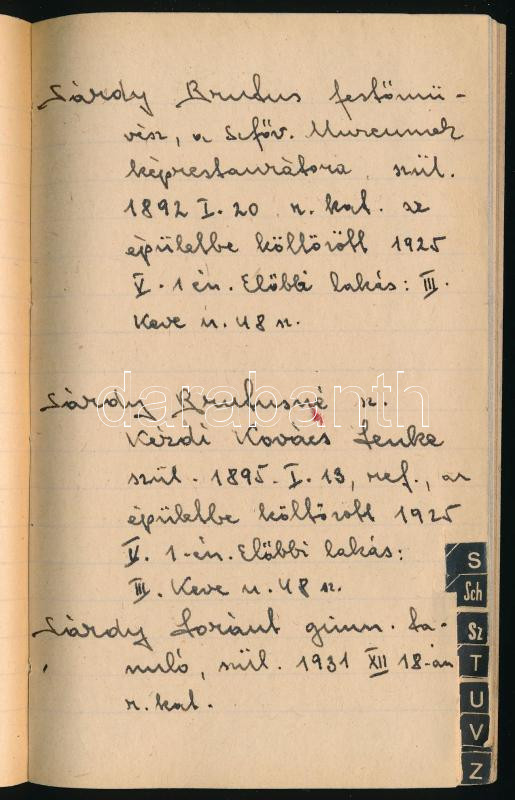 Sárdy Brutus festőmű-
vész, a Szföv. Muzeumok
képrestaurátora, szül.
1892 I. 20 r. kat. az
épületbe költözött 1925
V. 1-én. Előbbi lakás: III.
Keve u. 48 sz.
Sárdy Brutusné sz.
Kézdi Kovács Lenke
szül. 1895. I. 13, ref., az
épületbe költözött 1925
V. 1-én. Előbbi lakás:
III. Keve u. 48 sz.
Sárdy Loránt gimn. ta-
nuló, szül. 1931 XII 18-án
r. kat.
darabanth
S
Sch
Sz
T
U
V
Z